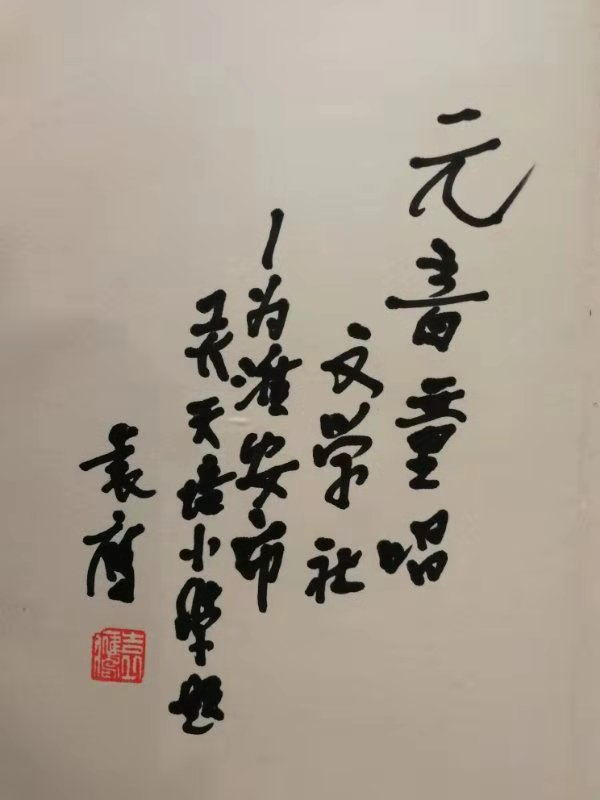 元音童唱
文学社
—为淮安市
关天培小学题
袁鹰
袁鹰